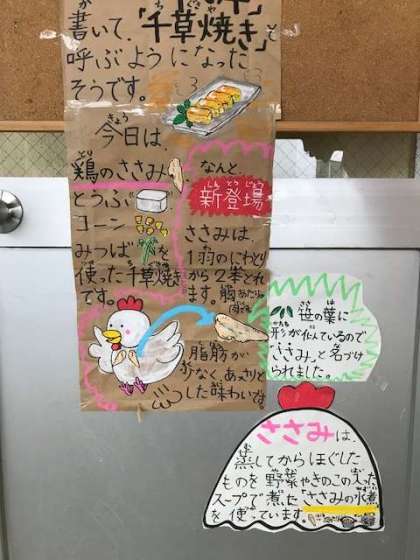 書いて、「千草焼き」と
呼ぶようになった
そうです。
今日は、
鶏のささみ
とうふ
コーン
みつば を
使った千草焼き
です。
なんと、
新登場
ささみは、
1羽のにわとり
から2本とれ
ます。胸あたりの
肉です。
脂肪が
少なく あっさりと
した味わいです。
笹の葉に
形が似ているので
「ささみ」と名づけ
られました。
ささみは、
蒸してからほぐした
ものを野菜やきのこの入った
スープで煮た「ささみの水煮」
を使っています。